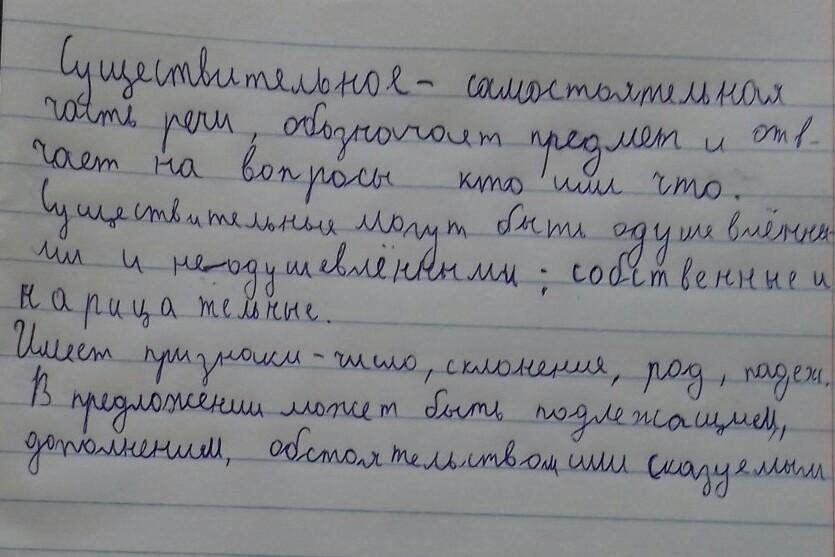 Существительное - самостоятельная
часть речи, обозначает предмет и отв-
чает на вопросы кто или что.
Существительные могут быть одушевлённы-
ми и не-одушевлёнными; собственные и
нарицательные.
Имеет признаки - число, склонения, род, падеж.
В предложении может быть подлежащием,
дополнением, обстоятельством или сказуемым